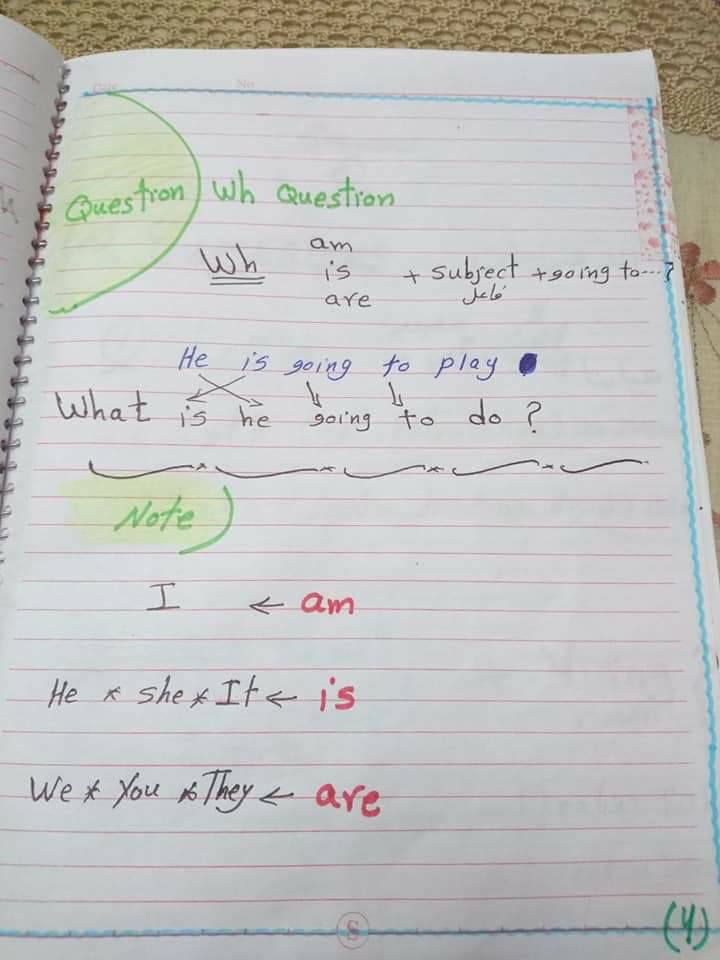 Date No
Question) Wh Question
am
Wh is + subject + going to ...?
are فاعل
He is going to play
What is he going to do ?
Note)
I ← am
He * she * It ← is
We * You * They ← are
S
(4)